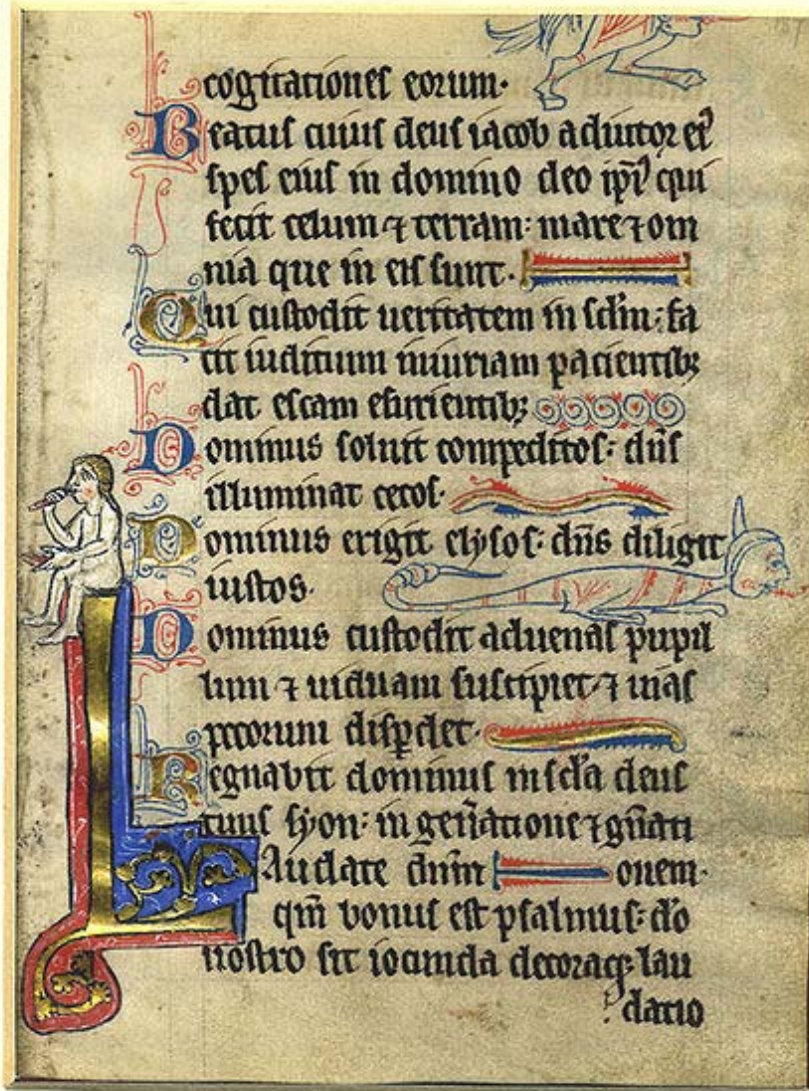 cogitationes eorum.
Beatus cuius deus iacob adiutor ei'
spes eius in domino deo ipi' qui
fecit celum ⁊ terram: mare ⁊ om
nia que in eis sunt.
Qui custodit ueritatem in sclm: fa
cit iudicium iniuriam pacientibꝫ
dat escam esurientibꝫ
Dominus soluit compeditos: dn̄s
illuminat cecos.
Dominus erigit elysos: dn̄s diligit
iustos.
Dominus custodit aduenas pupil
lum ⁊ uiduam suscipiet: ⁊ uias
pccorum disꝑdet.
Regnabit dominus in scla deus
tuus syon: in gen̄atione ⁊ gn̄ati
Laudate dn̄m onem.
qm̄ bonus est psalmus: do
nostro sit iocunda decoraqꝫ lau
datio